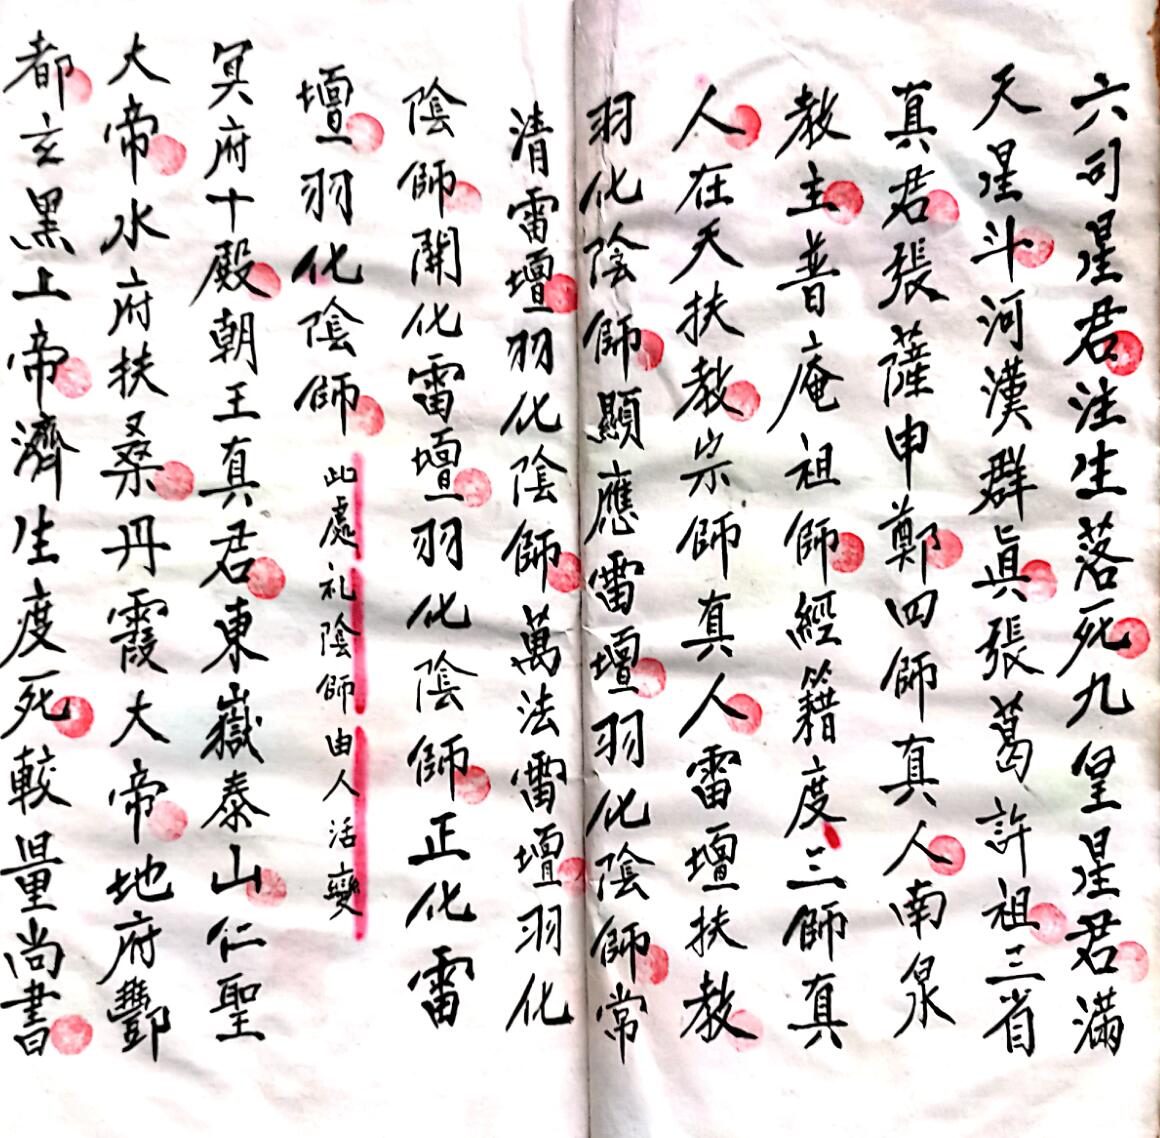 六司星君注生落死九皇星君滿
天星斗河漢群眞張葛許祖三省
真君張薩申鄭四師真人南泉
教主普庵祖師經籍度三師真
人在天扶教宗師真人雷壇扶教
羽化陰師顯應雷壇羽化陰師常
清雷壇羽化陰師萬法雷壇羽化
陰師開化雷壇羽化陰師正化雷
壇羽化陰師此處礼陰師由人活變
冥府十殿朝王真君東嶽泰山仁聖
大帝水府扶桑丹霞大帝地府酆
都玄黑上帝濟生度死較量尚書